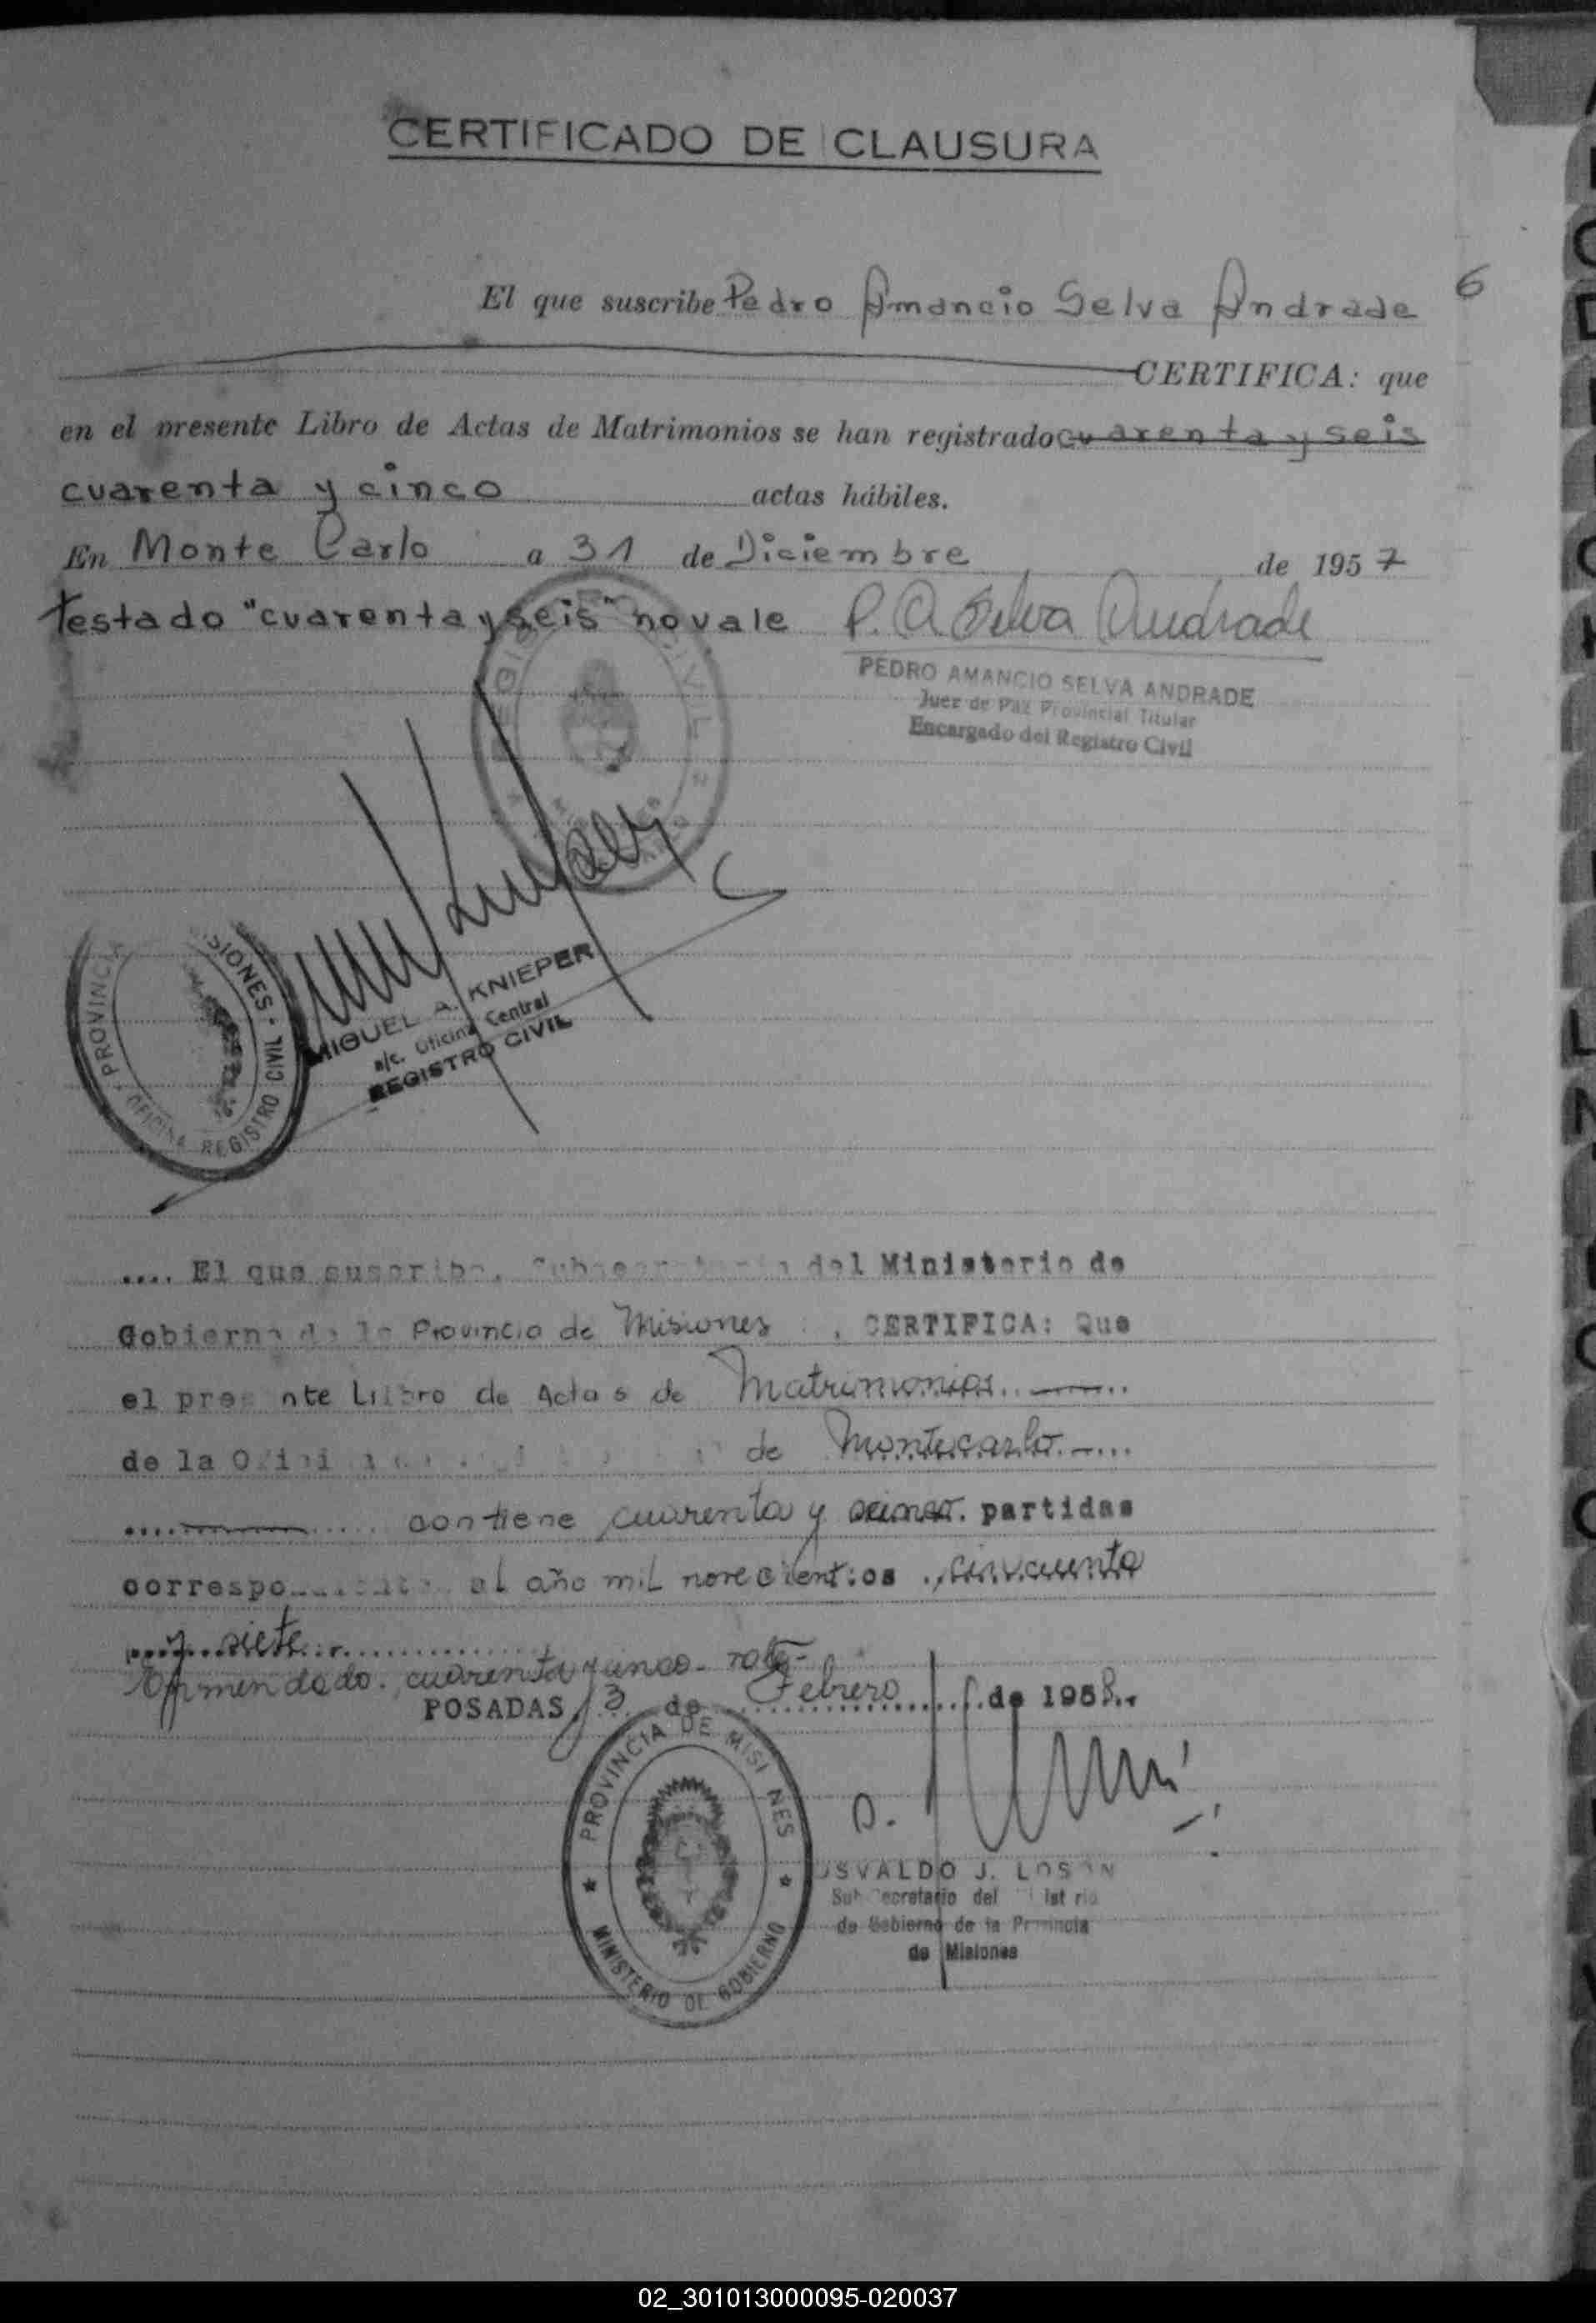 CERTIFICADO DE CLAUSURA
El que suscribe Pedro Amancio Selva Andrade
6
CERTIFICA: que
en el presente Libro de Actas de Matrimonios se han registrado cuarenta y seis
cuarenta y cinco actas hábiles.
En Monte Carlo a 31 de Diciembre de 1957
Testado "cuarenta y seis" no vale P. A. Selva Andrade
PEDRO AMANCIO SELVA ANDRADE
Juez de Paz Provincial Titular
Encargado del Registro Civil
REGISTRO CIVIL
PROVINCIA MISIONES
OFICINA REGISTRO CIVIL
MIGUEL A. KNIEPER
a/c. Oficina Central
REGISTRO CIVIL
.... El que suscribe, Subsecretario del Ministerio de
Gobierno de la Provincia de Misiones, CERTIFICA: Que
el presente Libro de Actas de Matrimonios
de la de Montecarlo
contiene cuarenta y cinco partidas
al año mil novecientos cincuenta
y siete
Enmendado. cuarenta y cinco.
POSADAS, 3 de Febrero de 1958
PROVINCIA DE MISI NES
MINISTERIO DE GOBIERNO
OSVALDO J.
Sub Secretario del
de Gobierno de la Provincia
de Misiones
02_301013000095-020037